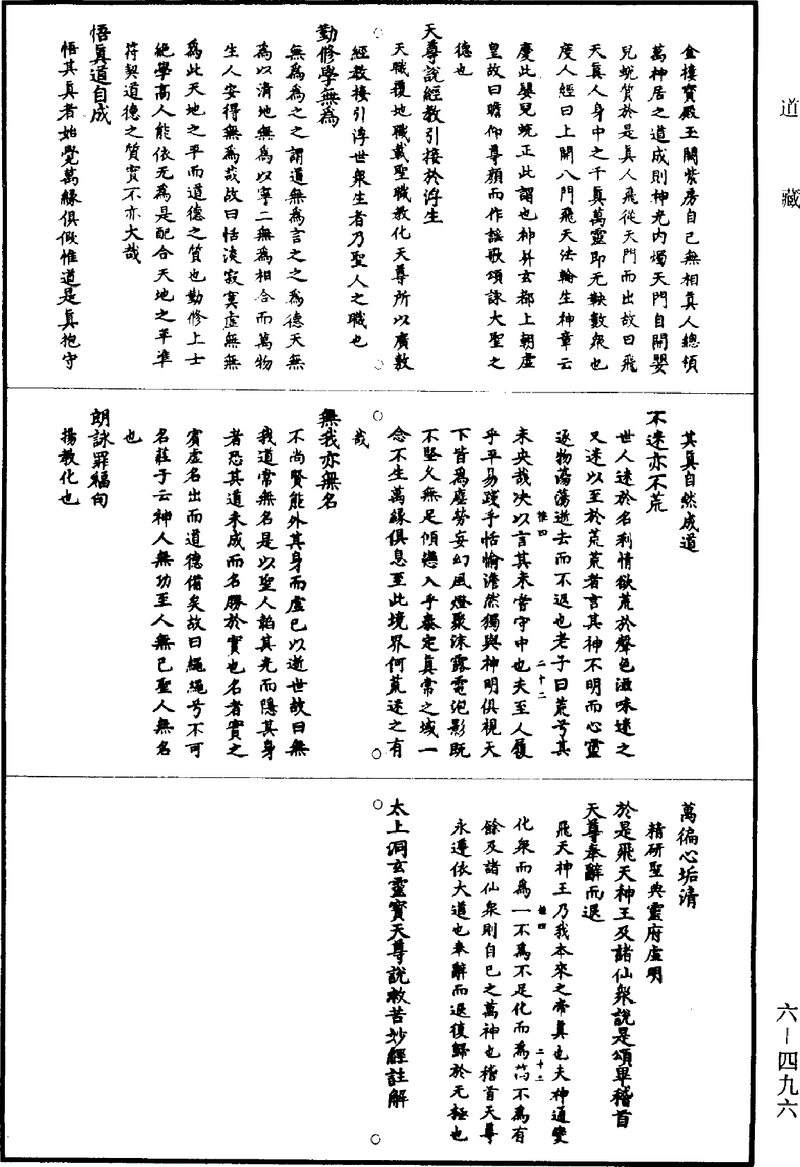 道藏
金樓寶殿玉闕紫房自己無相真人總領
萬神居之道成則神光內燭天門自開嬰
兒蛻質於是真人飛從天門而出故曰飛
天真人身中之千真萬靈即无鞅數衆也
度人經曰上開八門飛天法輪生神章云
慶此嬰兒蛻正此謂也神昇玄都上朝虛
皇故曰瞻仰尊顏而作謡歌頌詠大聖之
德也
天尊說經教引接於浮生
天職覆地職載聖職教化天尊所以廣敷
經教接引浮世衆生者乃聖人之職也
勤修學無為
無為為之之謂道無為言之之為德天無
為以清地無為以寧二無為相合而萬物
生人安得無為哉故曰恬淡寂寞虛無無
為此天地之平而道德之質也勤修上士
絕學高人能依无為是配合天地之平準
符契道德之質實不亦大哉
悟真道自成
悟其真者始覺萬緣俱假惟道是真抱守
其真自然成道
不迷亦不荒
世人迷於名利情欲荒於聲色滋味迷之
又迷以至於荒荒者言其神不明而心靈
逐物蕩蕩逝去而不返也老子曰荒兮其
未央哉决以言其未嘗守中也夫至人履
乎平易踐乎恬愉澹然獨與神明俱視天
下皆為塵勞妄幻風燈聚沫露電泡影既
不堅久無足傾戀入乎泰定真常之域一
念不生萬緣俱息至此境界何荒迷之有
哉
無我亦無名
不尚賢能外其身而虛己以逝世故曰無
我道常無名是以聖人韜其光而隱其身
者恐其道未成而名勝於實也名者實之
賓虛名出而道德備矣故曰繩繩兮不可
名莊子云神人無功至人無己聖人無名
也
朗詠罪福句
揚教化也
萬徧心垢清
精研聖典靈府虛明
於是飛天神王及諸仙衆說是頌畢稽首
天尊奉辭而退
飛天神王乃我本來之帝真也夫神通變
化衆而為一不為不足化而為萬不為有
餘及諸仙衆則自己之萬神也稽首天尊
永遵依大道也奉辭而退復歸於无極也
太上洞玄靈寶天尊說救苦妙經註解
六－四九六